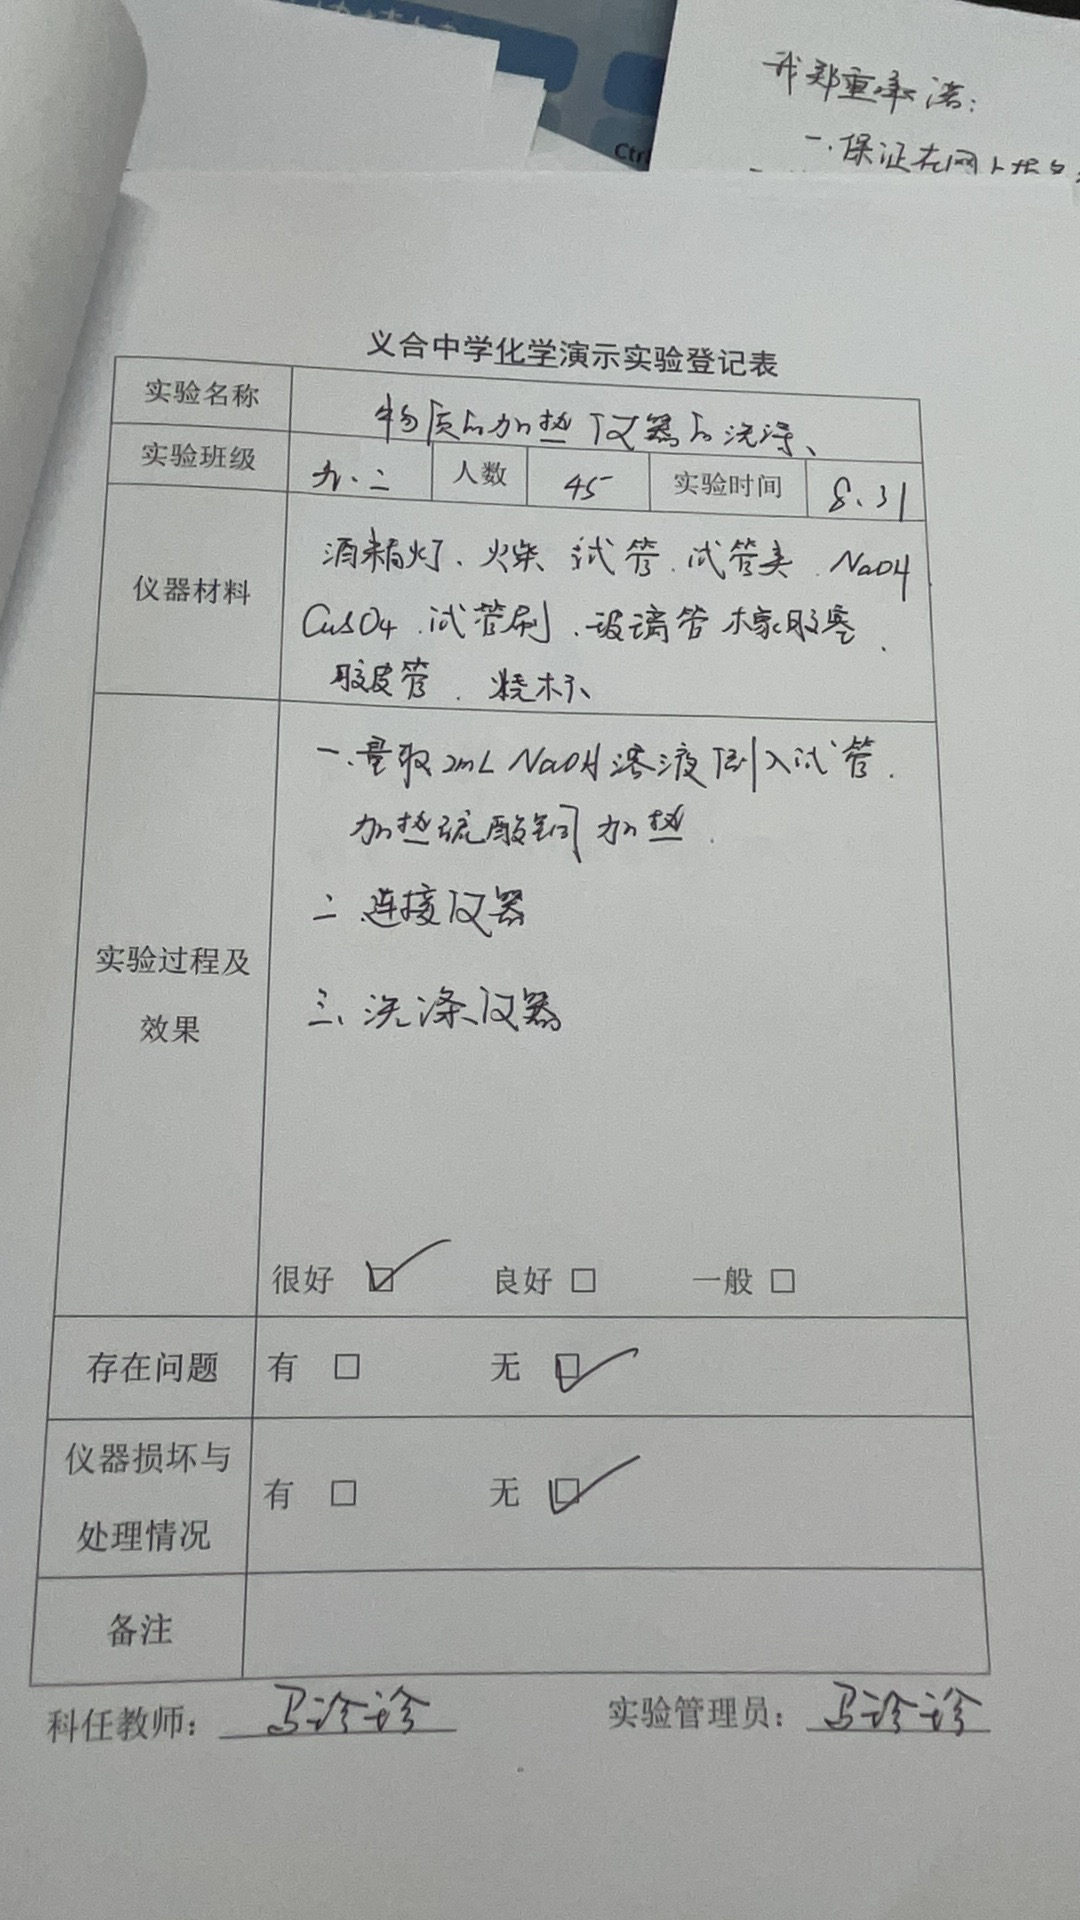 Ctrl
我郑重承诺:
一.保证在网上报名
义合中学化学演示实验登记表
实验名称 物质的加热 仪器的洗涤、
实验班级 九.二 人数 45 实验时间 8.31
仪器材料
酒精灯、火柴 试管.试管夹.NaOH
CuSO4.试管刷.玻璃管 橡胶塞.
胶皮管.烧杯、
实验过程及
效果
一.量取2mL NaOH溶液 倒入试管.
加热硫酸铜 加热.
二.连接仪器
三、洗涤仪器
很好 ☑ 良好 □ 一般 □
存在问题 有 □ 无 ☑
仪器损坏与
处理情况
有 □ 无 ☑
备注
科任教师: 马诊诊 实验管理员: 马诊诊